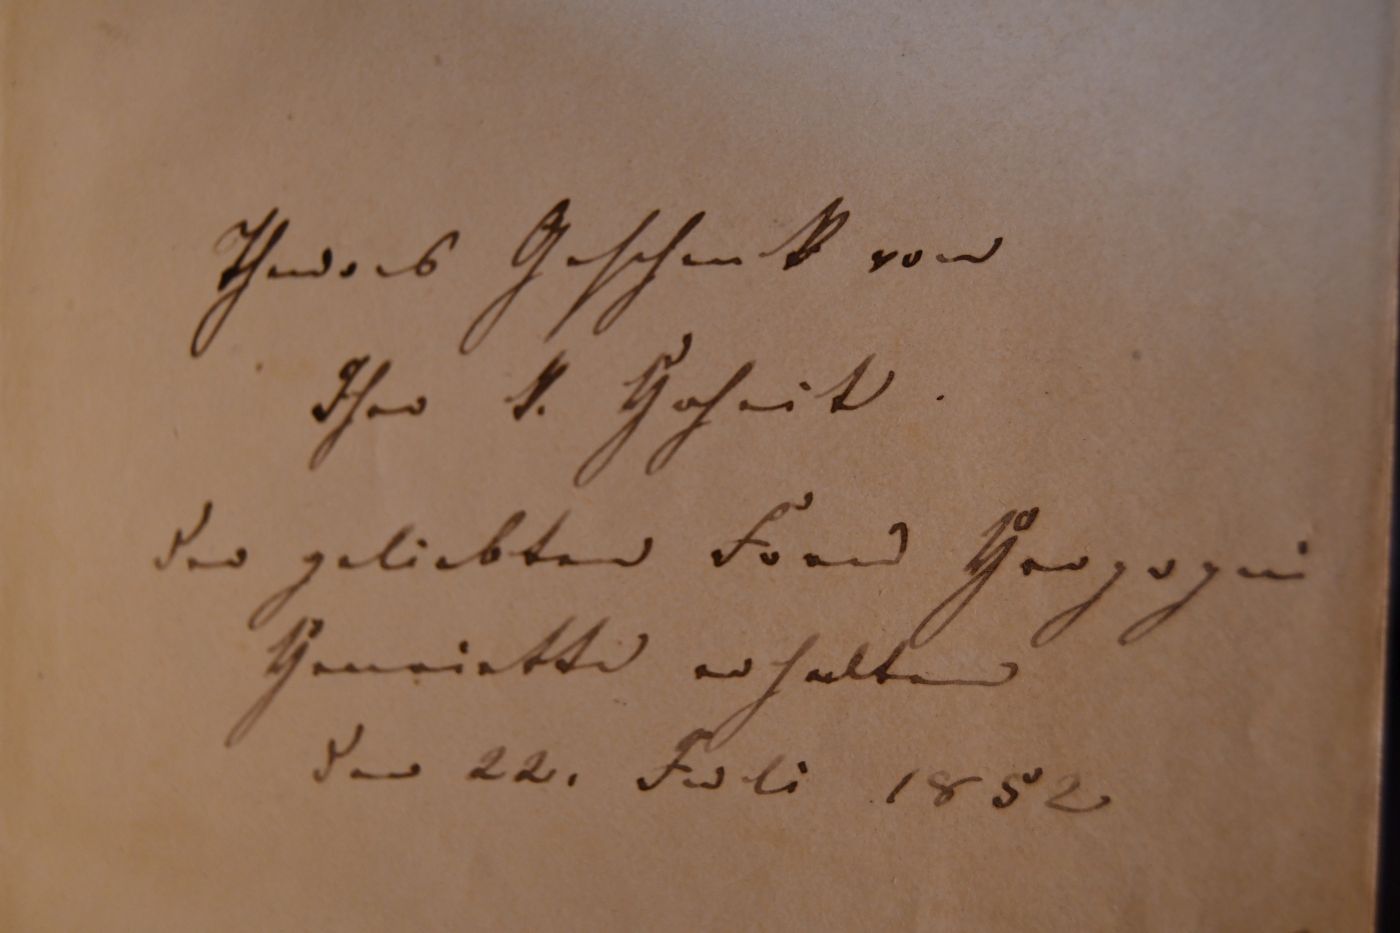 Theures Geschenk von
Ihro K. Hoheit.
der geliebten Frau Herzogin
Henriette erhalten
den 22. Juli 1852